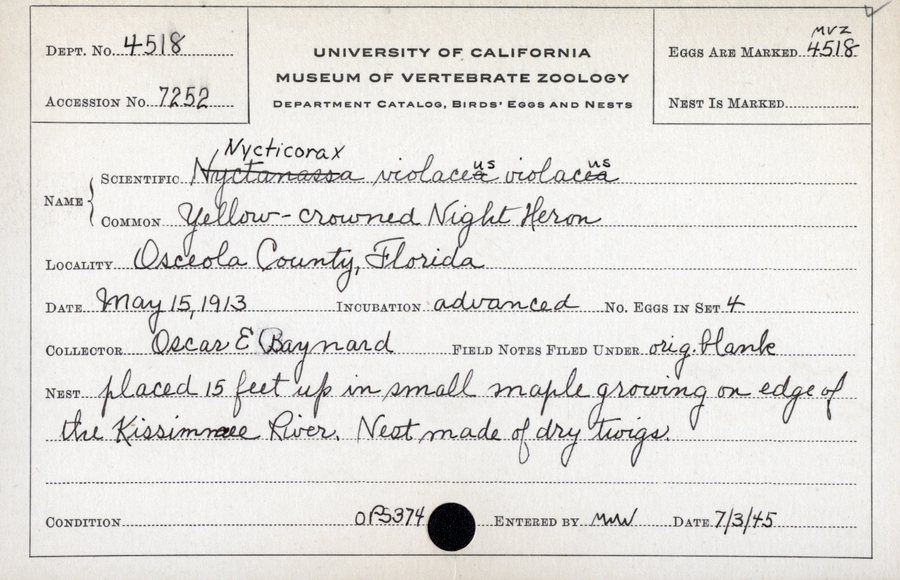 Dept. No. 4518
Accession No. 7252
UNIVERSITY OF CALIFORNIA
MUSEUM OF VERTEBRATE ZOOLOGY
Department Catalog, Birds' Eggs and Nests
MVZ
Eggs Are Marked 4518
Nest Is Marked
Nycticorax us us
Name { Scientific Nyctanassa violacea violacea
Common Yellow-crowned Night Heron
Locality Osceola County, Florida
Date May 15, 1913 Incubation advanced No. Eggs in Set 4
Collector Oscar E Baynard Field Notes Filed Under orig. blank
Nest placed 15 feet up in small maple growing on edge of
the Kissimmee River. Nest made of dry twigs.
Condition Entered by Date 7/3/45